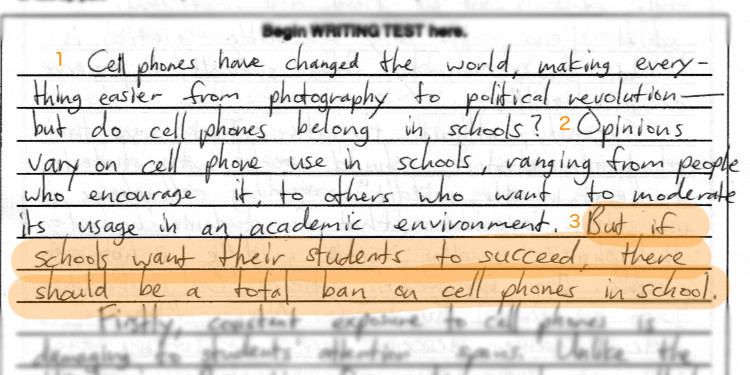 Begin WRITING TEST here.
1 Cell phones have changed the world, making every-
thing easier from photography to political revolution—
but do cell phones belong in schools? 2 Opinions
vary on cell phone use in schools, ranging from people
who encourage it, to others who want to moderate
its usage in an academic environment. 3 But if
schools want their students to succeed, there
should be a total ban on cell phones in school.
Firstly, constant exposure to cell phones is
damaging to students' attention spans. Unlike the